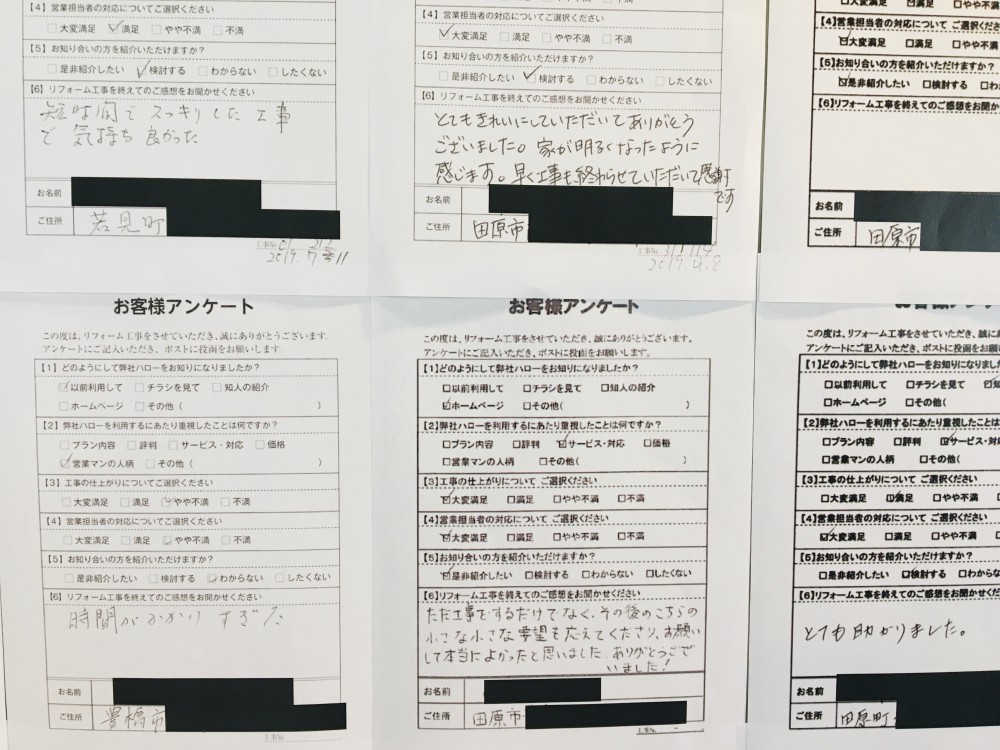 【4】営業担当者の対応についてご選択ください
□大変満足 ☑満足 □やや不満 □不満
【5】お知り合いの方を紹介いただけますか?
□是非紹介したい ☑検討する □わからない □したくない
【6】リフォーム工事を終えてのご感想をお聞かせください
短時間でスッキリした工事
で気持ち良かった
お名前
ご住所 若見町
2019.7
【4】営業担当者の対応についてご選択ください
☑大変満足 □満足 □やや不満 □不満
【5】お知り合いの方を紹介いただけますか?
□是非紹介したい ☑検討する □わからない □したくない
【6】リフォーム工事を終えてのご感想をお聞かせください
とてもきれいにしていただいてありがとう
ございました。家が明るくなったように
感じます。早く工事も終わらせていただいて感謝
です
お名前
ご住所 田原市
2019.4.8
□大変満足 ☑満足 □やや不満
【4】営業担当者の対応について ご選択くだ
☑大変満足 □満足 □やや不満
【5】お知り合いの方を紹介いただけますか?
☑是非紹介したい □検討する □わか
【6】リフォーム工事を終えてのご感想をお聞
お名前
ご住所 田原市
お客様アンケート
この度は、リフォーム工事をさせていただき、誠にありがとうございます。
アンケートにご記入いただき、ポストに投函をお願いします
【1】どのようにして弊社ハローをお知りになりましたか?
☑以前利用して □チラシを見て □知人の紹介
□ホームページ □その他( )
【2】弊社ハローを利用するにあたり重視したことは何ですか?
□プラン内容 □評判 □サービス・対応 □価格
☑営業マンの人柄 □その他( )
【3】工事の仕上がりについてご選択ください
□大変満足 □満足 ☑やや不満 □不満
【4】営業担当者の対応についてご選択ください
□大変満足 □満足 ☑やや不満 □不満
【5】お知り合いの方を紹介いただけますか?
□是非紹介したい □検討する ☑わからない □したくない
【6】リフォーム工事を終えてのご感想をお聞かせください
時間がかかりすぎた
お名前
ご住所 豊橋市
工事No.
お客様アンケート
この度は、リフォーム工事をさせていただき、誠にありがとうございます。
アンケートにご記入いただき、ポストに投函をお願いします。
【1】どのようにして弊社ハローをお知りになりましたか?
□以前利用して □チラシを見て □知人の紹介
☑ホームページ □その他( )
【2】弊社ハローを利用するにあたり重視したことは何ですか?
□プラン内容 □評判 ☑サービス・対応 □価格
□営業マンの人柄 □その他( )
【3】工事の仕上がりについて ご選択ください
☑大変満足 □満足 □やや不満 □不満
【4】営業担当者の対応について ご選択ください
☑大変満足 □満足 □やや不満 □不満
【5】お知り合いの方を紹介いただけますか?
☑是非紹介したい □検討する □わからない □したくない
【6】リフォーム工事を終えてのご感想をお聞かせください
ただ工事をするだけでなく、その後のこちらの
小さな小さな要望も応えてくださり、お願い
して本当によかったと思いました。ありがとうござ
いました!
お名前
ご住所 田原市
工事No.
この度は、リフォーム工事をさせていただき、誠に
アンケートにご記入いただき、ポストに投函をお願い
【1】どのようにして弊社ハローをお知りになり
□以前利用して □チラシを見て
□ホームページ □その他(
【2】弊社ハローを利用するにあたり重視した
□プラン内容 □評判 ☑サービス・対
□営業マンの人柄 □その他(
【3】工事の仕上がりについて ご選択くださ
□大変満足 ☑満足 □やや不満
【4】営業担当者の対応について ご選択くだ
☑大変満足 □満足 □やや不満
【5】お知り合いの方を紹介いただけますか?
□是非紹介したい ☑検討する □わか
【6】リフォーム工事を終えてのご感想をお聞
とても助かりました。
お名前
ご住所 田原町